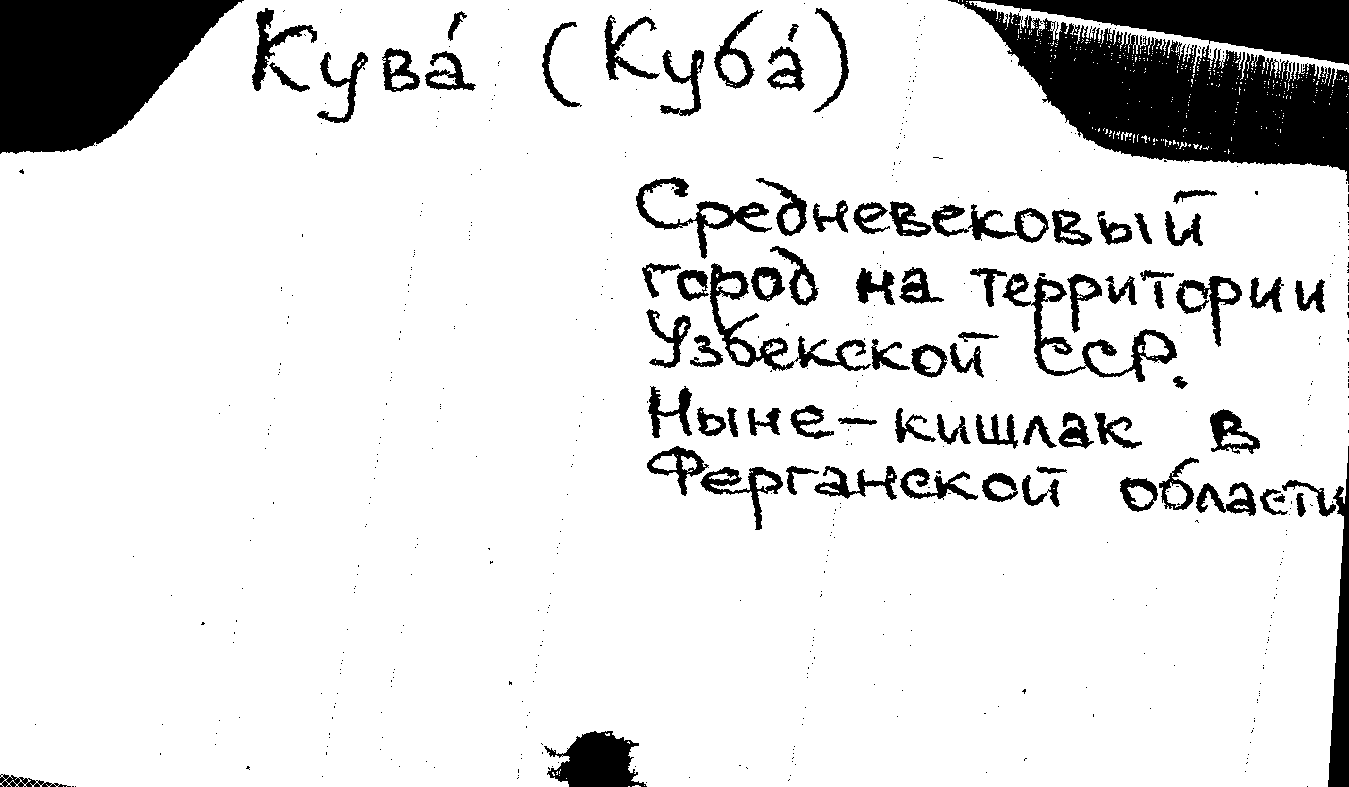 Кува́ (Куба́)
Средневековый
город на территории
Узбекской ССР.
Ныне – кишлак в
Ферганской области